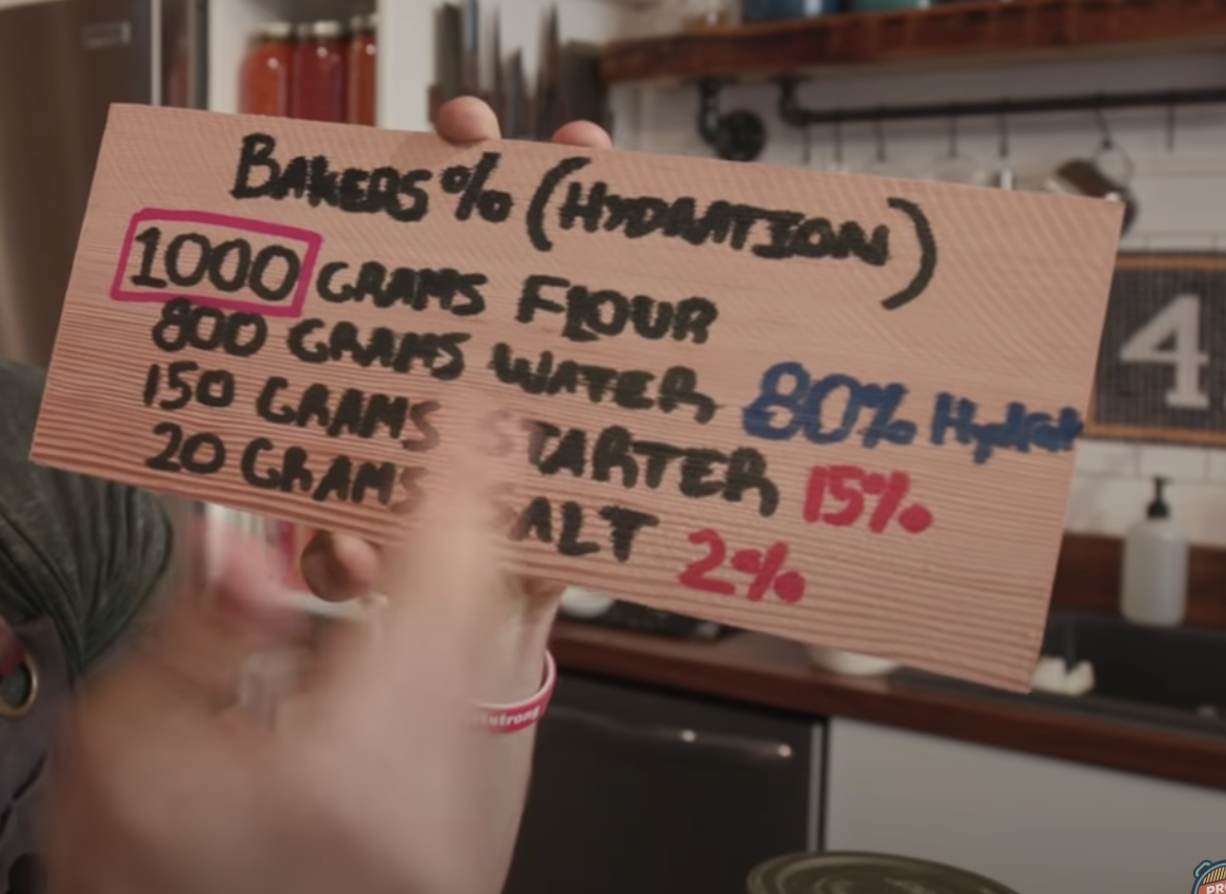 BAKERS % (HYDRATION)
1000 GRAMS FLOUR
800 GRAMS WATER 80% Hydrat
150 GRAMS STARTER 15%
20 GRAMS SALT 2%
4
strong